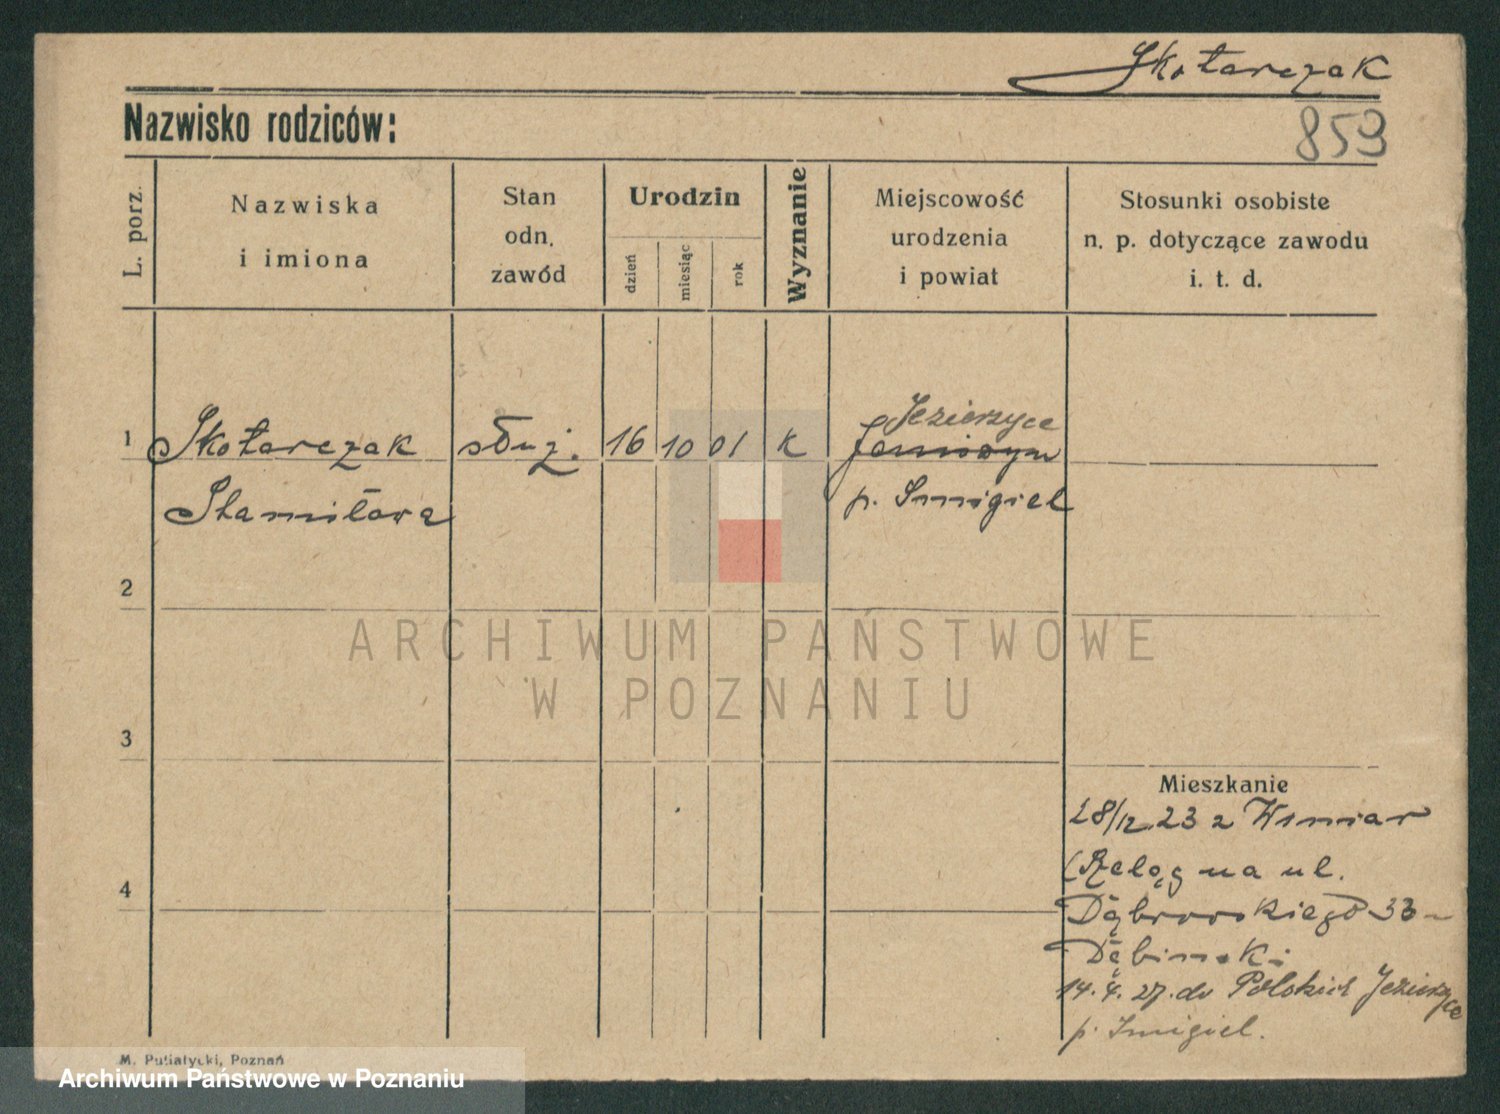 Skotarczak
Nazwisko rodziców:
859
L. porz.
Nazwiska
i imiona
Stan
odn.
zawód
Urodzin
dzień
miesiąc
rok
Wyznanie
Miejscowość
urodzenia
i powiat
Stosunki osobiste
n. p. dotyczące zawodu
i. t. d.
Jezierzyce
1 Skotarczak służ. 16 10 01 K
Stanisława p. Smigiel
2
ARCHIWUM PAŃSTWOWE
W POZNANIU
3
Mieszkanie
28/12.23 z Winiar
4
na ul.
Dąbrowskiego 33 -
Dębinski
14.4.27. do Polskich Jezierzyce
p. Smigiel.
M. Putiatycki, Poznań
Archiwum Państwowe w Poznaniu